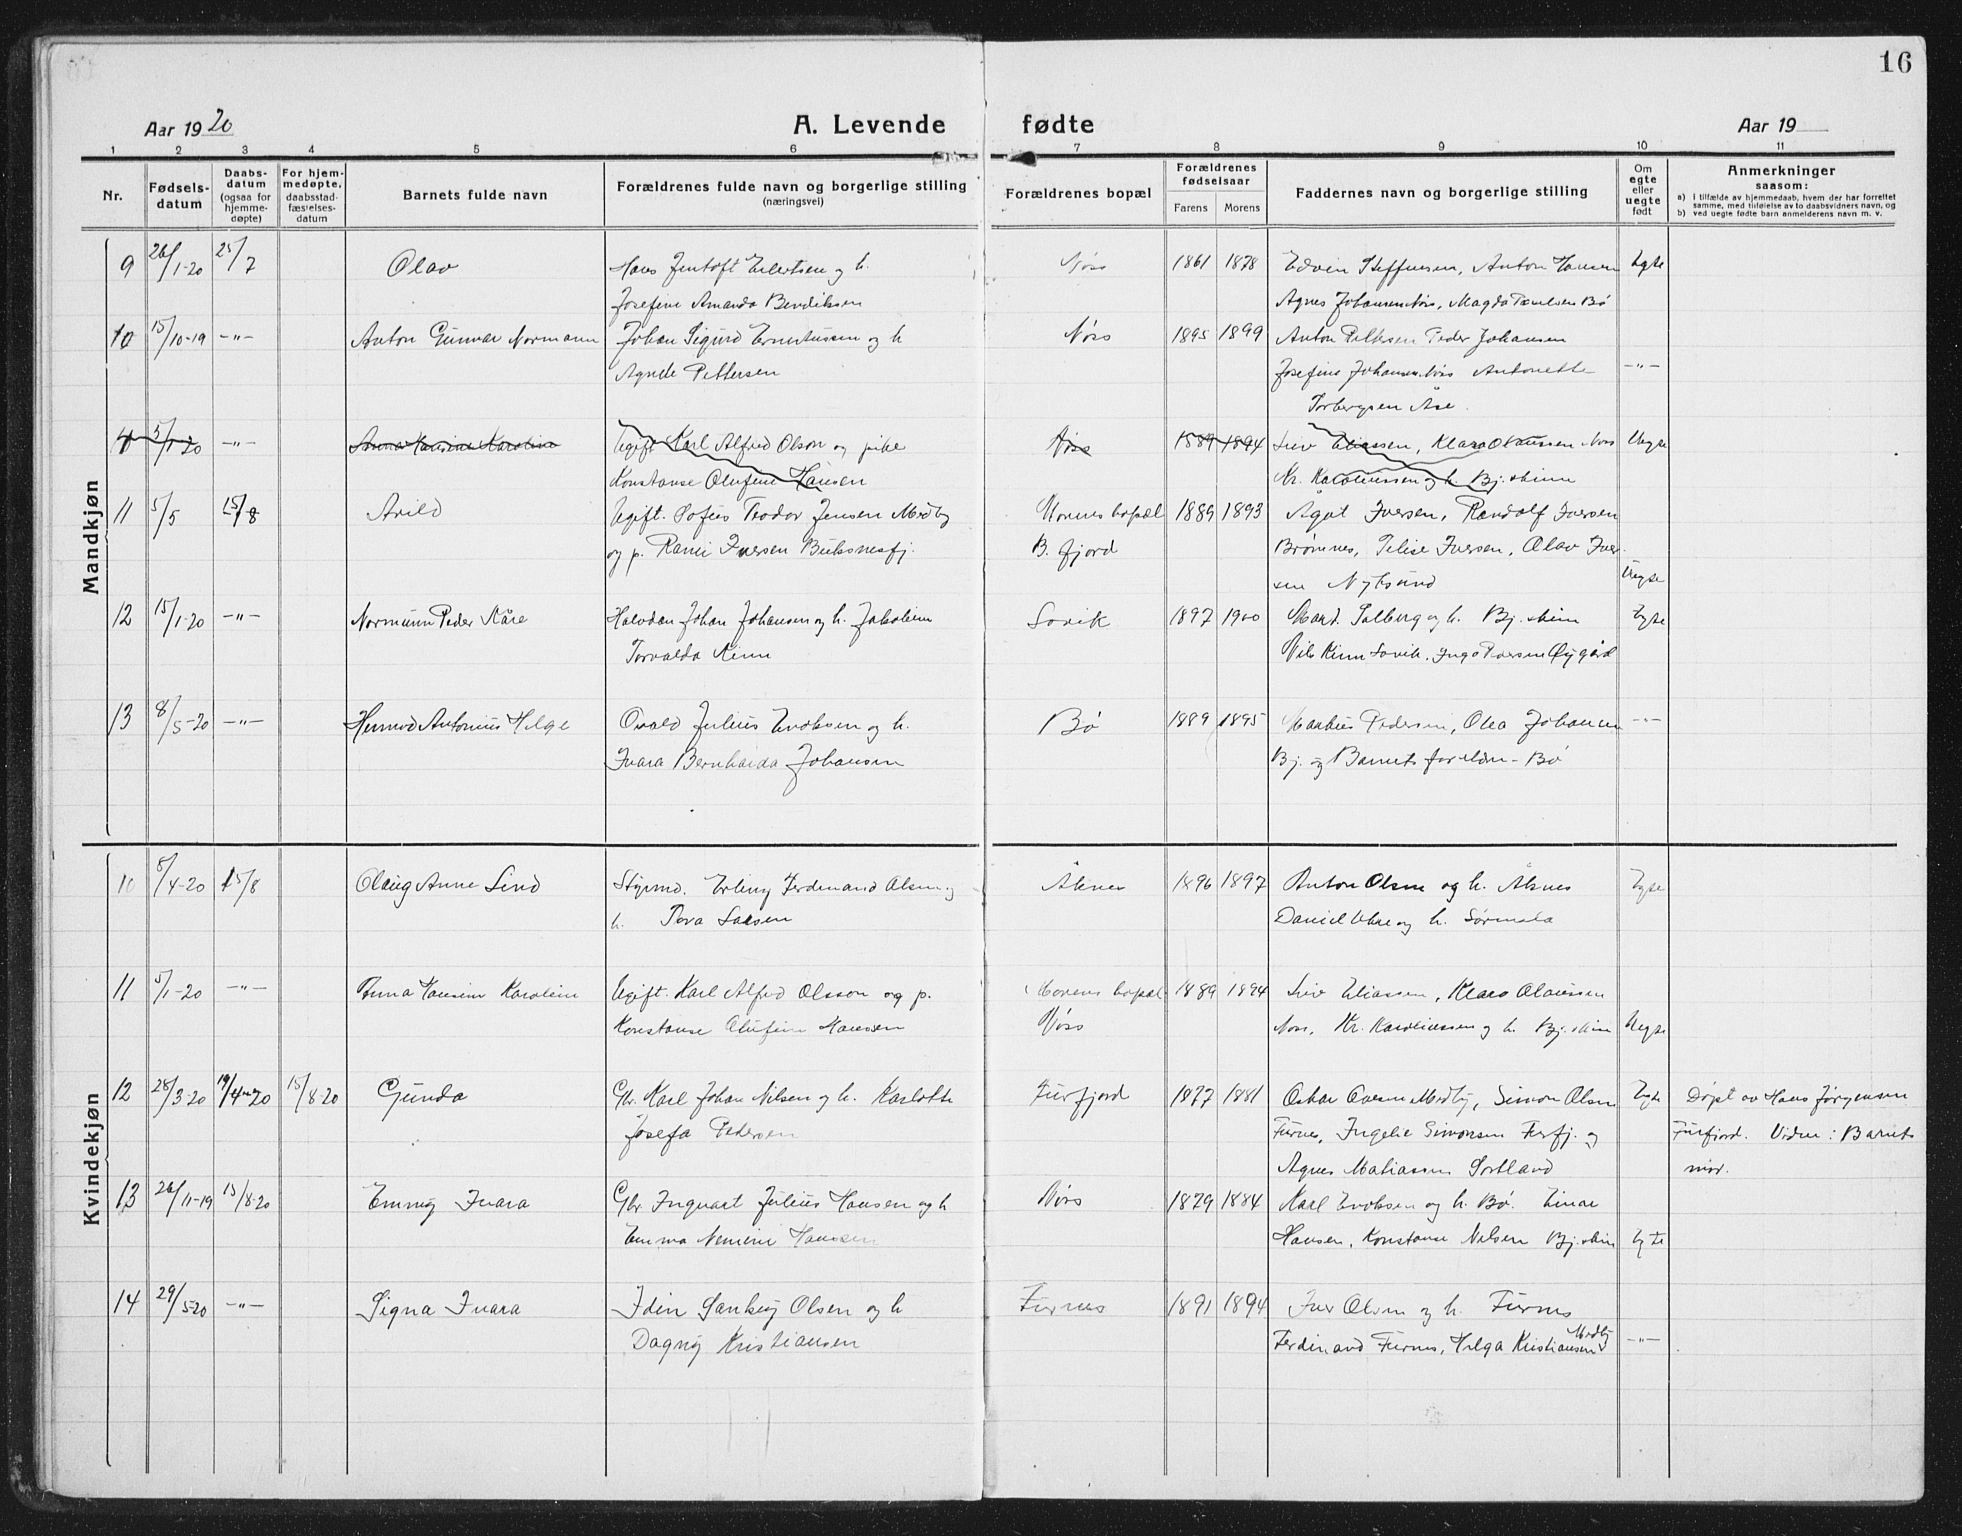 16
Aar 1920
A. Levende fødte
Aar 19
1 2 3 4 5 6 7 8 9 10 11
Nr.
Fødsels-
datum
Daabs-
datum
(ogsaa for
hjemme-
døpte)
For hjem-
medøpte,
daabsstad-
fæstelses-
datum
Barnets fulde navn
Forældrenes fulde navn og borgerlige stilling
(næringsvei)
Forældrenes bopæl
Forældrenes
fødselsaar
Farens Morens
Faddernes navn og borgerlige stilling
Om
egte
eller
uegte
født
Anmerkninger
saasom:
a) i tilfælde av hjemmedaab, hvem der har forrettet
samme, med tilføielse av to daabsvidners navn, og
b) ved uegte fødte barn anmelderens navn m. v.
Mandkjøn
9 26/1-20 25/7 Olav Hans Jentoft Eilertsen og h. Nøss 1861 1878 Edvin Steffensen, Anton Hansen Egte
Josefine Amanda Bendiksen Agnes Johansen Nøss, Magda Paulsen Bø
10 15/10-19 -"- Anton Gunnar Normann Johan Sigurd Ernstussen og h Nøss 1895 1899 Anton Pettersen Peder Johansen
Agnete Pettersen Josefine Johansen Nøss Antonette -"-
Torbergsen Åse.
5/1-20 -"- Anna Hansine Karoline Ugift Karl Alfred Olson og pike Nøss 1889 1894 Eliassen, Klara Olaussen Nøss Uegte
Konstanse Olufine Hansen Kr. Karoliussen og h. Bj.skinn
11 5/5 15/8 Arild Ugift. Sofus Teodor Jensen Medby Morens bopæl 1889 1893 Ågot Iversen, Randolf Iversen
og p. Ranni Iversen Buksnesfj. B. fjord Brømnes, Iversen, Olav Iver-
sen Nyksund Uegte
12 15/1-20 -"- Normann Peder Kåre Halvdan Johan Johansen og h. Jakobine Sovik 1897 1900 Solberg og h. Bj.skinn Egte
Torvalda Kinn Nils Kinn Sovik, Inga Øygård
13 8/5-20 -"- Hermod Antonius Helge Osvald Julius Enoksen og h. Bø 1889 1895 Markus Pedersen, Olea Johansen -"-
Ivara Bernharda Johansen Bj. og Barnets foreldre - Bø
Kvindekjøn
10 8/4-20 15/8 Olaug Anne Lind Styrmd. Erling Ferdinand Olsen og Åknes 1896 1897 Anton Olsen og h. Åknes Egte
h. Tora Larsen Daniel og h. Sørmela
11 5/1-20 -"- Anna Hansine Karoline Ugift. Karl Alfred Olsson og p. Morens bopæl 1889 1894 Eliassen, Klara Olaussen
Konstanse Olufine Hanssen Nøss Nøss, Kr. Karoliussen og h. Bj.skinn Uegte
12 28/3-20 19/4-20 15/8-20 Gunda Gbr. Karl Johan Nilsen og h. Karlotte Furfjord 1877 1881 Oskar Medby, Simon Olsen Egte Døpt av Hans Jørgensen
Josefa Pedersen Furnes, Ingelie Simonsen Furfj. og Furfjord. Vidne: Barnets
Agnes Matiassen Sortland mor.
13 26/11-19 15/8-20 Emmy Ivara Gbr. Ingvart Julius Hansen og h Nøss 1879 1884 Karl Enoksen og h. Bø. Einar
Emma Hansen Hansen, Konstanse Nilsen Bj.skinn Egte
14 29/5-20 -"- Signa Ivara Edin Sankey Olsen og h Furnes 1891 1894 Iver Olsen og h. Furnes
Dagny Kristiansen Ferdinand Furnes, Helga Kristiansen Medby -"-